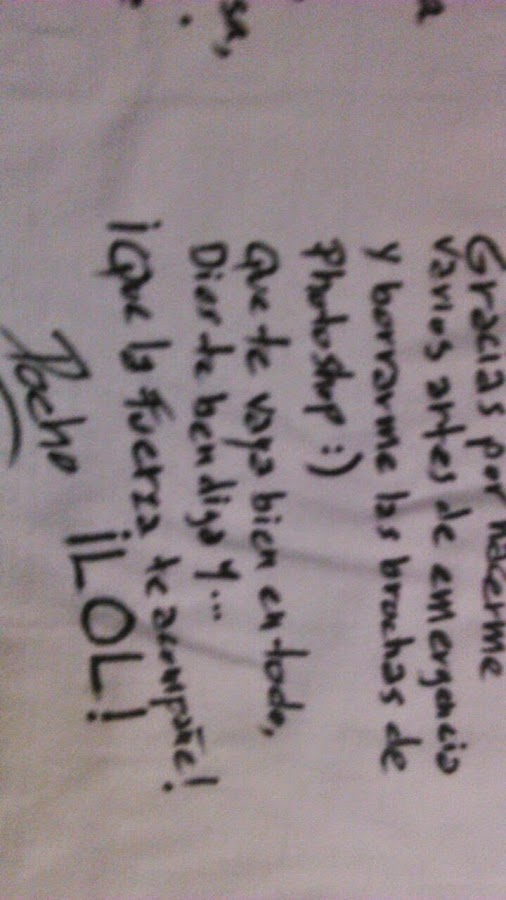 Gracias por hacerme
varios artes de emergencia
y borrarme las brochas de
Photoshop :)
Que te vaya bien en todo,
Dios te bendiga y...
¡Que la fuerza te acompañe!
¡LOL!
Pocho